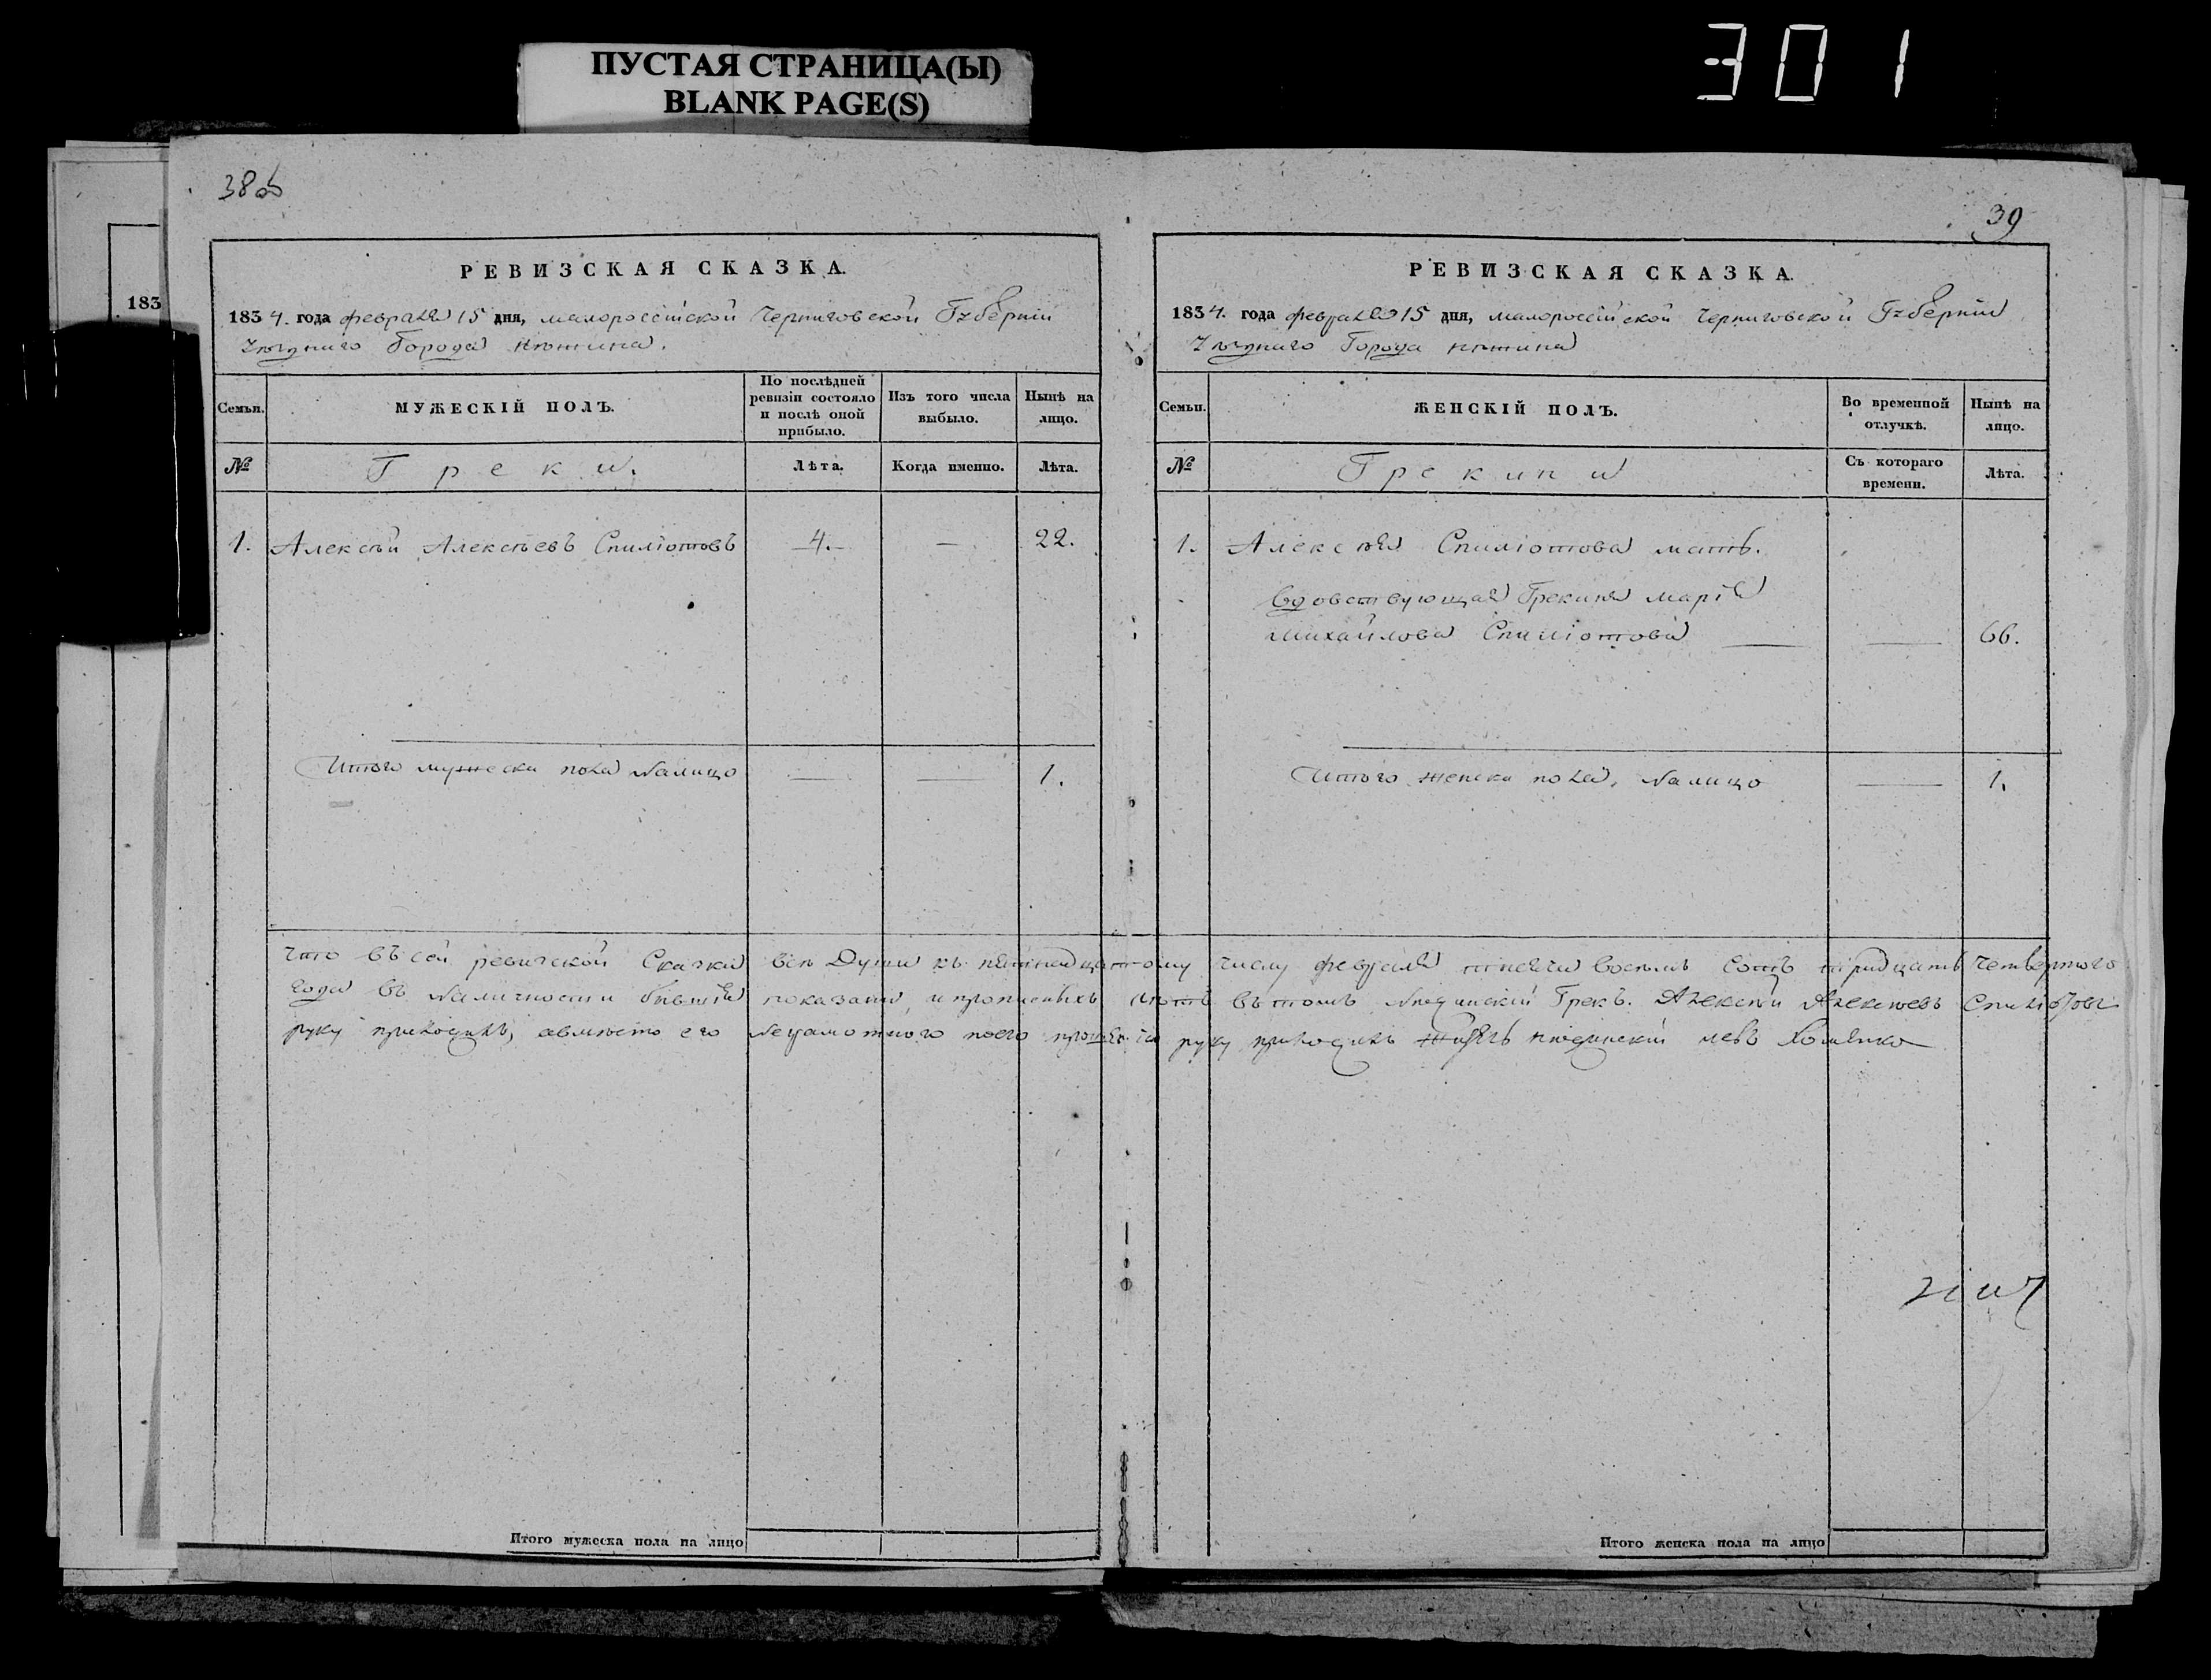 ПУСТАЯ СТРАНИЦА(Ы)
BLANK PAGE(S)
301
38об
183
РЕВИЗСКАЯ СКАЗКА.
1834. года февраля 15 дня, малороссійской Черниговской Губерніи
уѣзднаго Города Нѣжина.
Семьи.
МУЖЕСКІЙ ПОЛЪ.
По послѣдней ревизіи состояло и послѣ оной прибыло.
Изъ того числа выбыло.
Нынѣ на лицо.
№
Греки.
Лѣта.
Когда именно.
Лѣта.
1. Алексѣй Алексѣевъ Спиліотовъ — 4. — — 22.
Итого мужеска пола налицо — — 1.
39
РЕВИЗСКАЯ СКАЗКА.
1834. года февраля 15 дня, малороссійской Черниговской Губерніи
уѣзднаго Города Нѣжина
Семьи.
ЖЕНСКІЙ ПОЛЪ.
Во временной отлучкѣ.
Нынѣ на лицо.
№
Грекини
Съ котораго времени.
Лѣта.
1. Алексѣя Спиліотова мать.
вдовствующая Грекиня Марія
Михайлова Спиліотова — — 66.
Итого женска пола, налицо — 1.
Что въ сей ревизской Сказки всѣ Души къ пятнадцатому числу февраля тысяча восемь сотъ тридцать четвертого
года въ наличности бывшія показаны, и прописныхъ нѣтъ въ томъ Нѣжинскій Грекъ. Алексѣй Алексѣевъ Спиліотовъ
руку приложилъ, авмѣсто его неграмотного поего прошенію руку приложилъ нѣжинскій левъ Хоменко
Итого мужеска пола на лицо
Итого женска пола на лицо